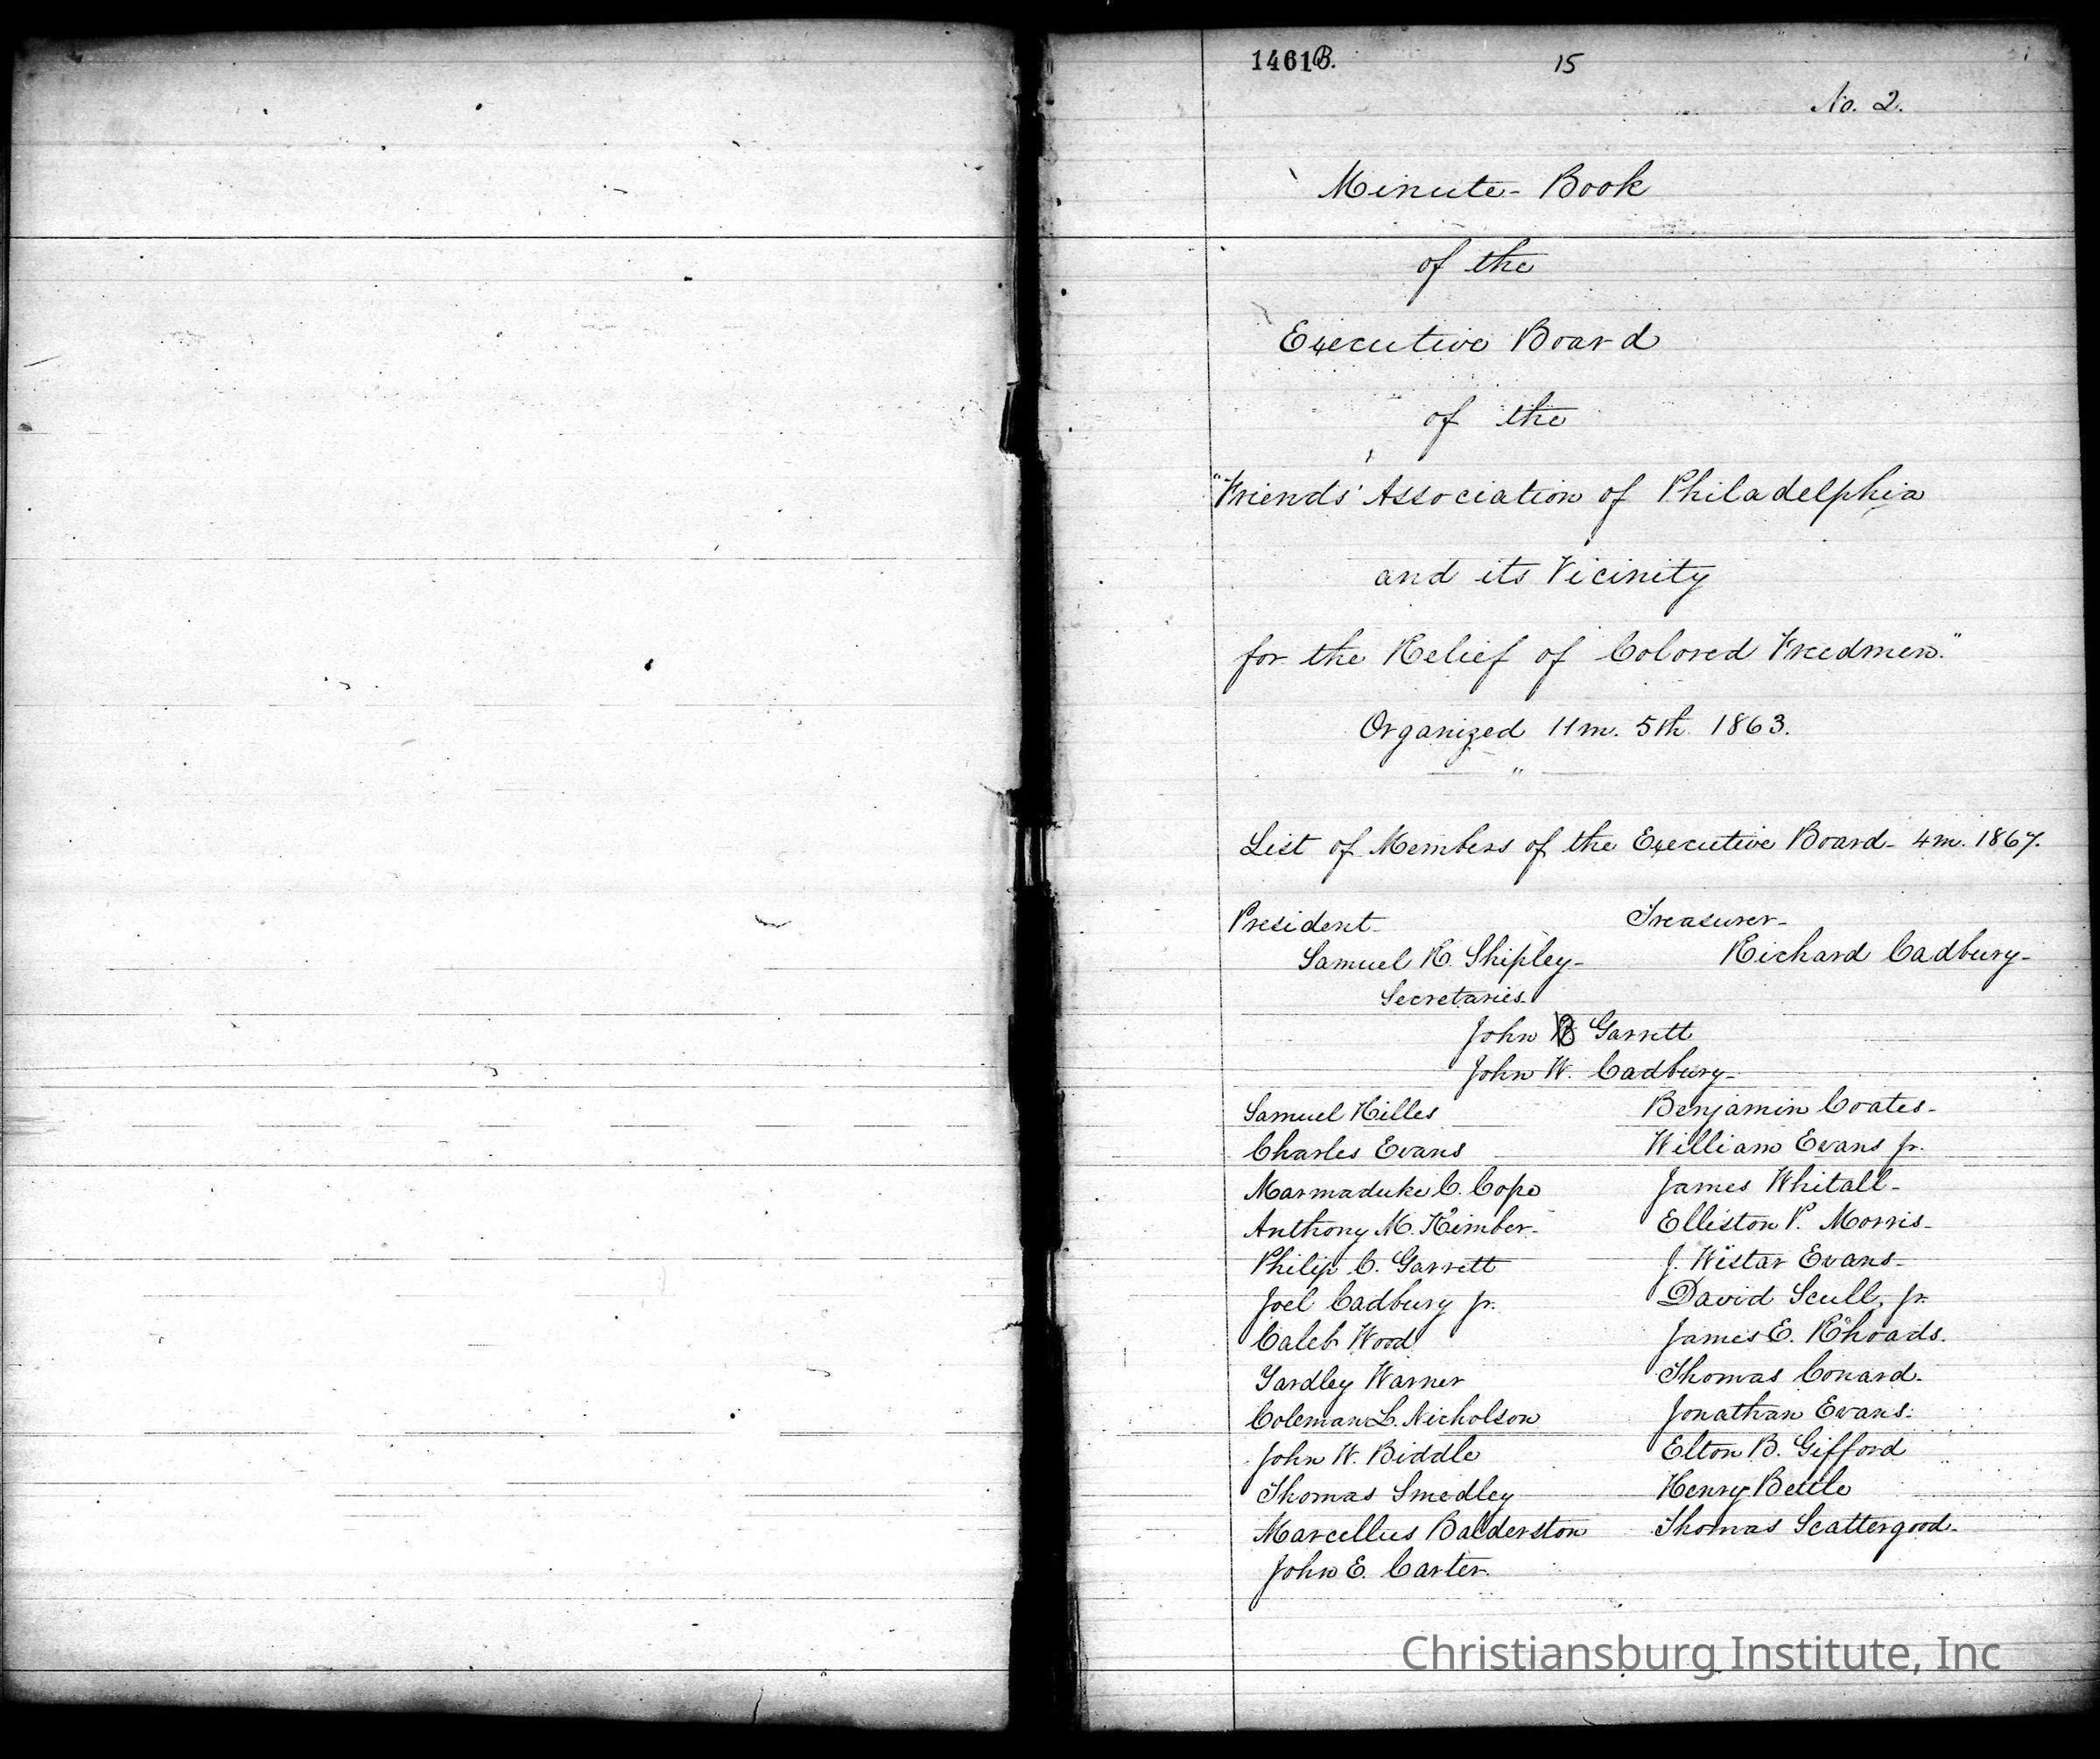 1461B. 15
No. 2.
Minute-Book
of the
Executive Board
of the
"Friends' Association of Philadelphia
and its Vicinity
for the Relief of Colored Freedmen."
Organized 11m. 5th 1863.
List of Members of the Executive Board- 4m. 1867.
President- Treasurer-
Samuel R. Shipley- Richard Cadbury-
Secretaries.
John B Garrett
John W. Cadbury-
Samuel Hilles Benjamin Coates-
Charles Evans William Evans Jr.
Marmaduke C. Cope James Whitall-
Anthony M. Kimber- Elliston P. Morris-
Philip C. Garrett J. Wistar Evans-
Joel Cadbury Jr. David Scull, Jr.
Caleb Wood James E. Rhoads.
Yardley Warner Thomas Conard-
Coleman L. Nicholson Jonathan Evans-
John W. Biddle Elton B. Gifford
Thomas Smedley Henry Bettle
Marcellus Balderston Thomas Scattergood-
John E. Carter.
Christiansburg Institute, Inc